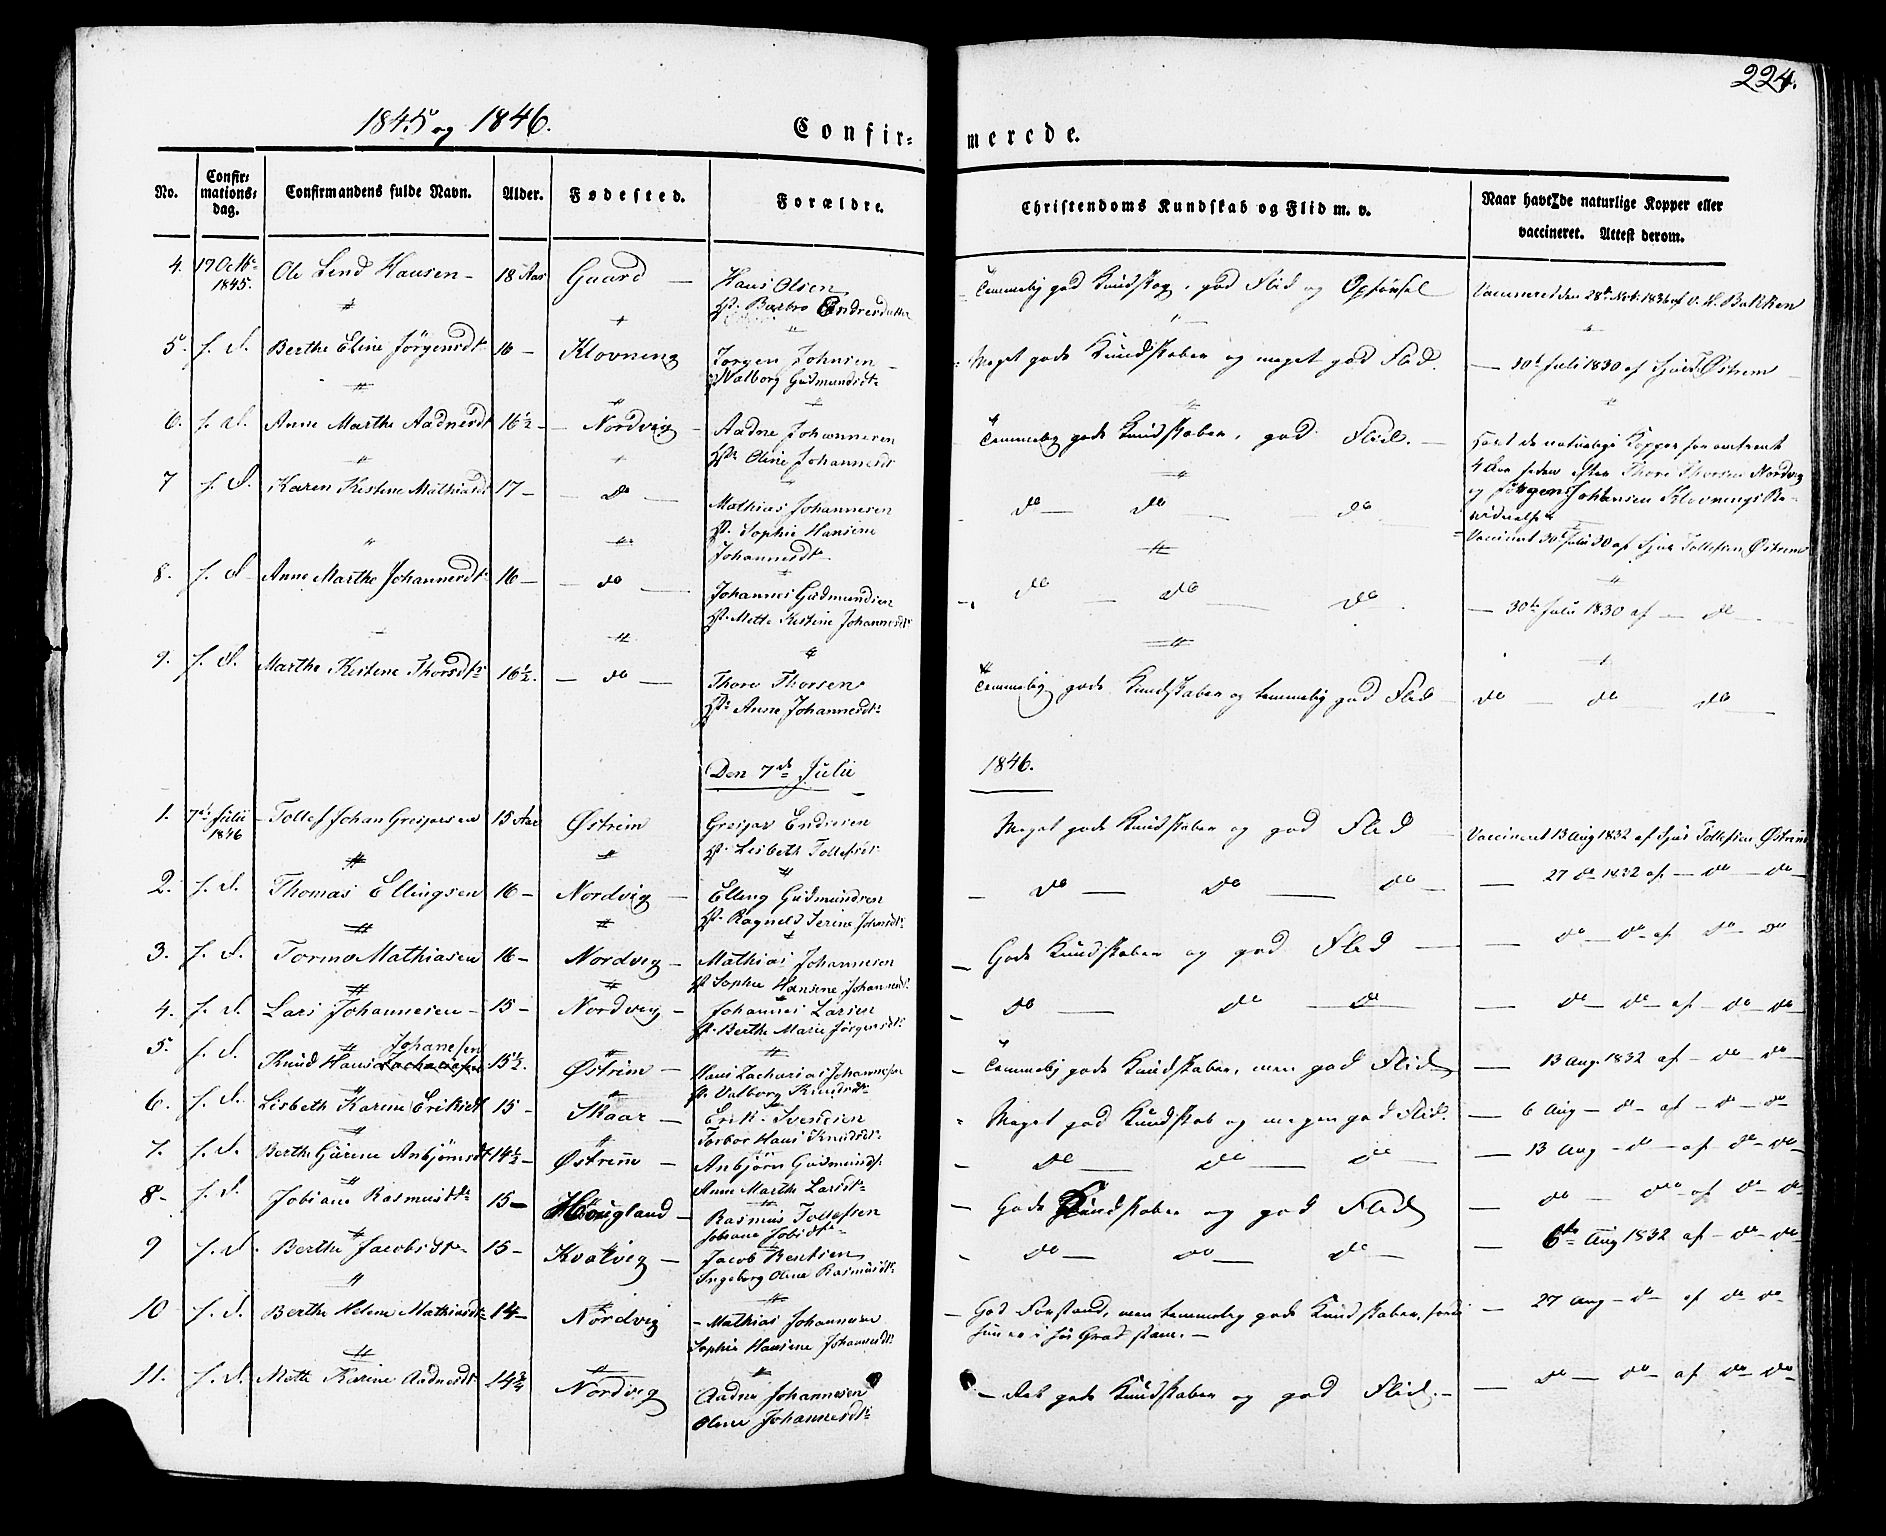 224.
1845 og 1846.
Confir- merede.
No. Confirmations-dag. Confirmandens fulde Navn. Alder. Fødested. Forældre. Christendoms Kundskab og Flid m. v. Naar havt de naturlige Kopper eller vaccineret. Attest derom.
4. 17 Octbr 1845. Ole Lend Hansen - 18 Aar Gaard - Hans Olsen
Barbro Endresdatter
Temmelig god Kundskab, god Flid og Opførsel
5. f. d. Berthe Eline Jörgensdt 16 - Klovning Jörgen Johnsen -
Valborg Gudmundsdt.
Meget gode Kundskaber og meget god Flid. - 30te Juli 1830 af Sjur Østrem
6. f. d. Anne Marthe Aadnesdt 16½ - Nordvig - Aadne Johannesen
Oline Johannesdt
Temmelig gode Kundskaber, god Flid. - Havt de naturlige Kopper for omtrent
4 Aar siden efter Thore Thorsen Nordvig
og Jörgen Johnsen Klovnings Be-
vidnelse
7 f. d. Karen Kistine Mathiasdt 17 - - do - Mathias Johannesen
Sophie Hansine
Johannesdt.
do - do - do - Vaccineret 30te Juli 30 af Sjur Tollefsen Østrem
8. f. d. Anne Marthe Johannesdt. 16 - - do - Johannes Gudmundsen
Mette Kistine Johannesdt.
do - do - do - 30te Juli 1830 af - do -
9. f. d. Marthe Kistine Thorsdt. 16½. - do - Thore Thorsen
Anne Johannesdt.
Temmelig gode Kundskaber og temmelig god Flid do - do - do -
Den 7de Julii 1846.
1. 7de Julii 1846 Tollef Johan Grespersen 15 Aar Østrem Gresper Endresen
Lisbeth Tollefsdt.
Meget gode Kundskaber og god Flid Vaccineret 13 Aug 1832 af Sjur Tollefsen Østrem
2. f. d. Thomas Ellingsen 16 - Nordvig - Elling Gudmundsen
Ragnild Serine Johnsdt.
- do - do - do - - 27 do 1832 af - do - do -
3. f. d. Tormo Mathiasen 16 - Nordvig - Mathias Johannesen
Sophie Hansine Johannesdt.
Gode Kundskaber og god Flid - - do - do - af do - do
4. f. d. Lars Johannesen - 15 - Nordvig - Johannes Larsen
Berthe Marie Jörgensdt.
do - do - do - - do - do - af - do do
5. f. d. Knud Hans Zachariasen Johanesen 15½. Østrem - Hans Zacharias Johannesen
Valborg Knudsdt.
Temmelig gode Kundskaber, men god Flid - 13 Aug. 1832 af - do - do -
6. f. d. Lisbeth Karine Eriksdt 15 - Skaar - Erik Svendsen
Torbor Hans Knudsdt.
Meget god Kundskab og megen god Flid. - 6 Aug - do - af - do - do
7. f. d. Berthe Gurine Anbjörnsdt. 14½ - Østrem - Anbjörn Gudmunds.
Anne Marthe Larsdt.
- do - do - do - - 13 Aug - do - af do - do
8 - f. d. Jobiane Rasmusdt. 15 - Höugland - Rasmus Tollefsen
Johane Jobsdt.
- Gode Kundskaber og god Flid - do - do af do - do -
9 f. d. Berthe Jacobsdt. 15 - Kvalvig - Jacob Bentsen
Ingeborg Oline Rasmusdt.
- do - do - do - - 6te Aug 1832 af - do - do -
10 f. d. Berthe Helene Mathiasdt. 14 - Nordvig - Mathias Johannesen
Sophie Hansine Johannesdt.
- God Forstand, men temmelig gode Kundskaber, fordi - 27 Aug - do - af do do -
hun er i høi Grad stam. -
11. f. d. Mette Karine Aadnesdt 14¾ Nordvig Aadne Johannesen
Oline Johannesdt.
- Ret gode Kundskaber og god Flid. - - do - do af do do -